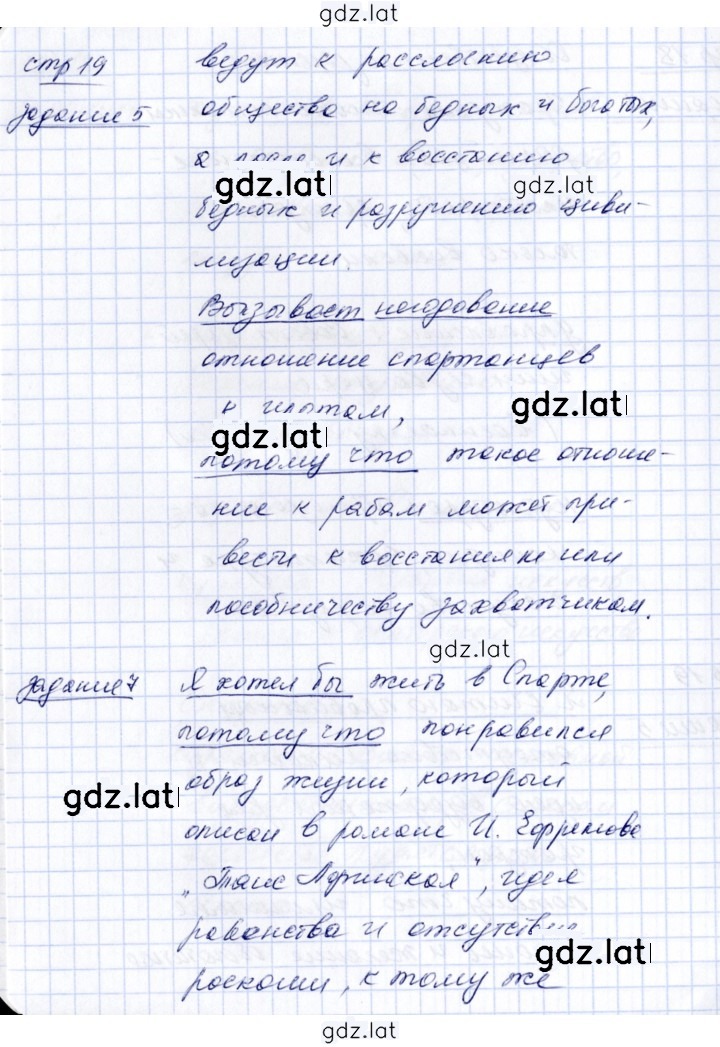 gdz.lat
стр 19 ведут к расслоению
задание 5 общества на бедных и богатых,
а после и к восстанию
gdz.lat gdz.lat
бедных и разрушению циви-
лизации.
Вызывает негодование
отношение спартанцев
к илотам, gdz.lat
gdz.lat
потому что такое отноше-
ние к рабам может при-
вести к восстаниям или
пособничеству захватчикам.
gdz.lat
задание 7 Я хотел бы жить в Спарте,
потому что понравился
образ жизни, который
gdz.lat
описан в романе И. Ефремова
„Таис Афинская", идея
равенства и отсутствие
gdz.lat
роскоши, к тому же
gdz.lat